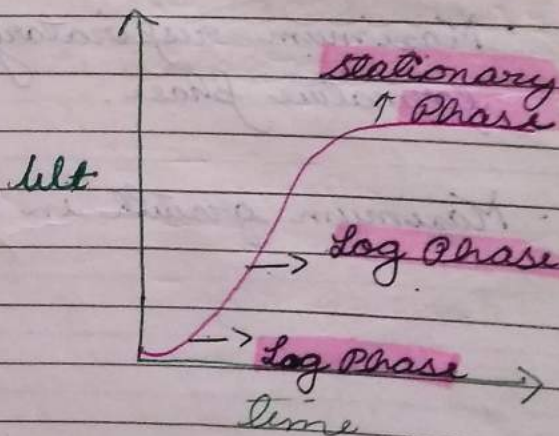 Stationary
Phase
Log Phase
Log Phase
time